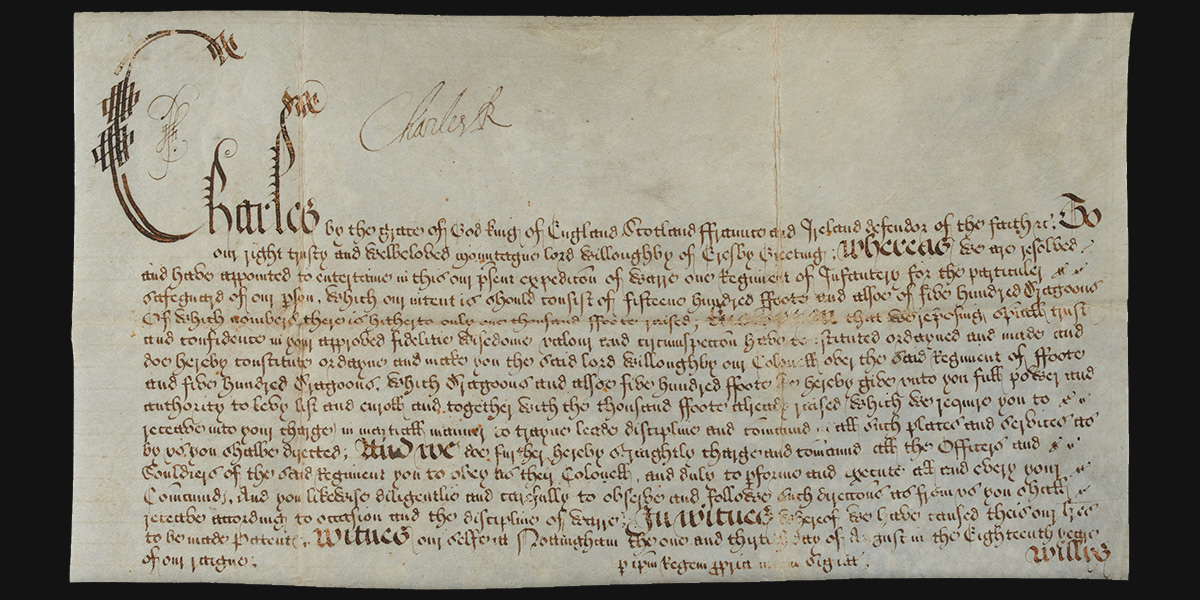 Charles R
Charles by the grace of God king of England Scotland ffraunce and Ireland defendor of the faith &c. To
our right trusty and welbeloved Mountague lord willoughby of Eresby Greeting; Whereas we are resolved
and have appointed to entertaine in this our p'sent expedicon of warre one Regiment of Infantery for the particuler
safeguard of our p'son, which our intent is should consist of fifteene hundred ffoote and alsoe of five hundred Dragoons
Of which nombers there is hitherto only one thousand ffoote raised; that we reposing especiall trust
and confidence in your approved fidelitie wisedome valour and circumspection have constituted ordayned and made and
doe hereby constitute ordayne and make you the said lord willoughby our Colonell over the said Regiment of ffoote
and five hundred Dragoons. which Dragoons and alsoe five hundred ffoote hereby give unto you full power and
authority to levy list and enroll and together with the thousand ffoote already raised which we require you to
receave into your charge in martiall manner to trayne leade discipline and comaund in all such places and services as
by us you shalbe directed; And we doe further hereby straightly charge and comaund all the Officers and
Souldiers of the said Regiment you to obey as their Colonell, and duly to p'forme and execute all and every your
Comaunds, And you likewise diligentlie and carefully to observe and followe such direccons as from us you shall
receave according to occasion and the discipline of warre; In witnes whereof we have caused theis our l'res
to be made Patent. witnes our selfe at Nottingham the one and thirtith day of August in the Eighteenth yeare
of our raigne.
p ip'm Regem p'pria manu Signat.
willis